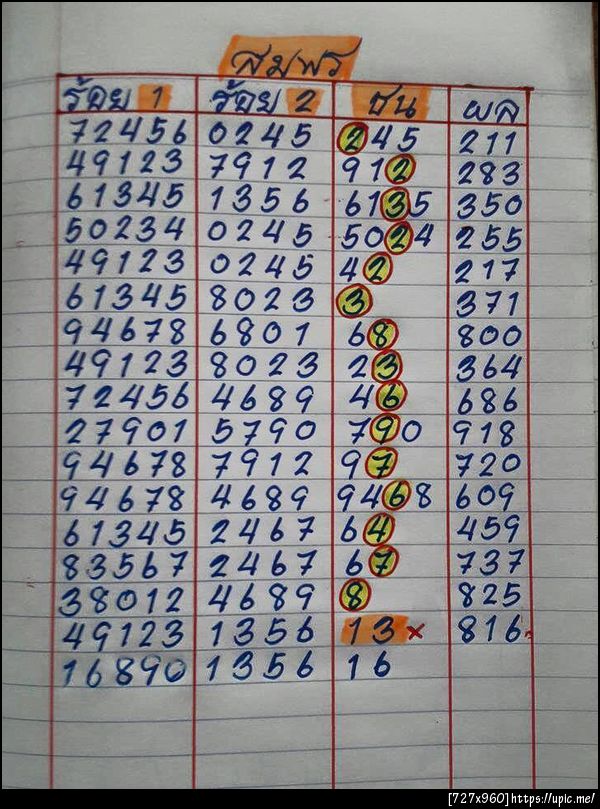 สมพร
ร้อย 1 ร้อย 2 ชน ผล
72456 0245 245 211
49123 7912 912 283
61345 1356 6135 350
50234 0245 5024 255
49123 0245 42 217
61345 8023 3 371
94678 6801 68 800
49123 8023 23 364
72456 4689 46 686
27901 5790 790 918
94678 7912 97 720
94678 4689 9468 609
61345 2467 64 459
83567 2467 67 737
38012 4689 8 825
49123 1356 13 × 816
16890 1356 16
[727x960]https://upic.me/